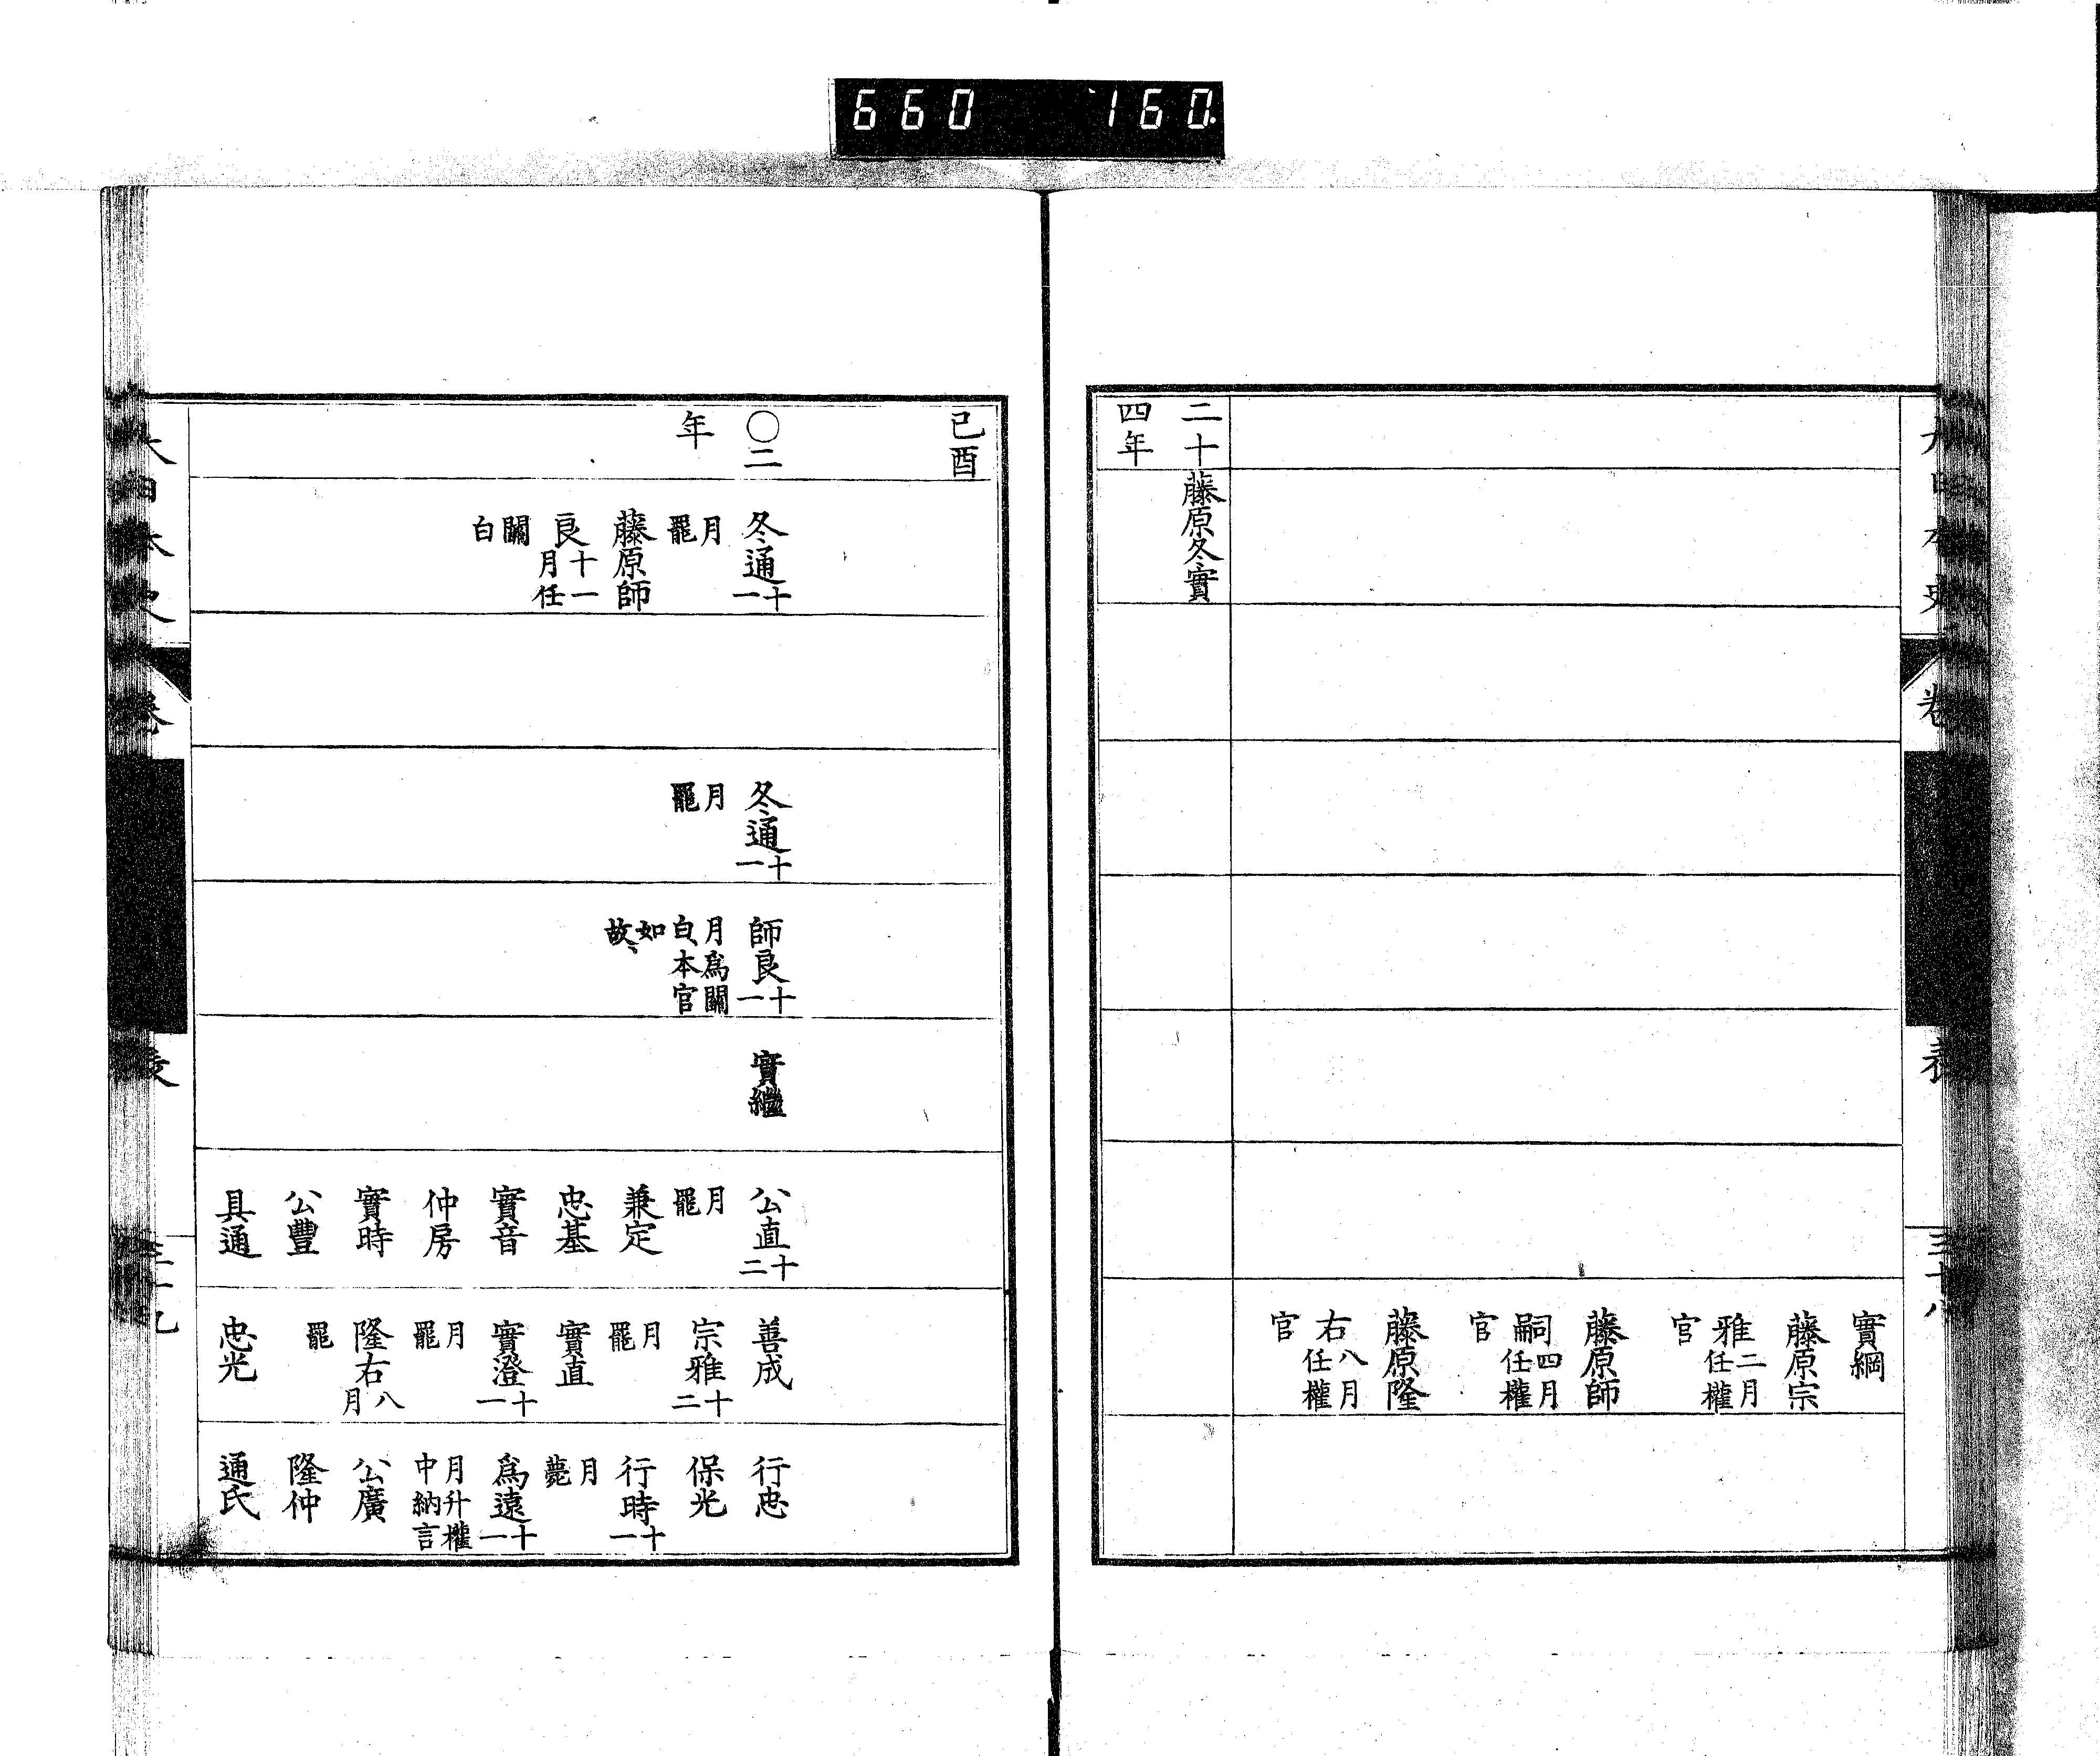 660 160.
大日本史
卷
表
三十八
實綱
藤原宗
雅二月任權
官
藤原師
嗣四月任權
官
藤原隆
右八月任權
官
二十
四年
藤原冬實
己酉
〇二
年
冬通十一
月罷
藤原師
良十一月任
關白
冬通十一
月罷
師良十一
月爲關白、本官
如故、
實繼
公直十二
月罷
兼定
忠基
實音
仲房
實時
公豐
具通
善成
宗雅十二
月罷
實直
實澄十一
月罷
隆右八月
罷
忠光
行忠
保光
行時十一
月薨
爲遠十一
月升權中納言
公廣
隆仲
通氏
大日本史
卷
表